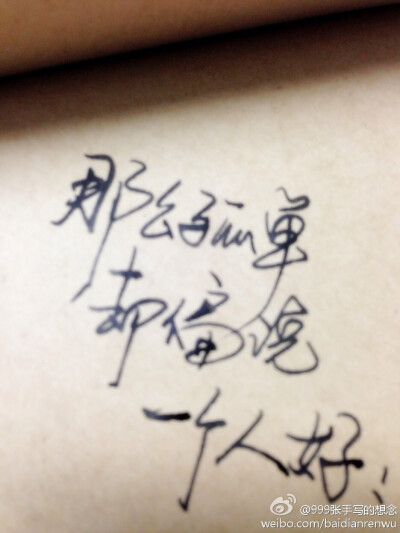 那么孤单
却偏说
一个人好;
@999张手写的想念
weibo.com/baidianrenwu